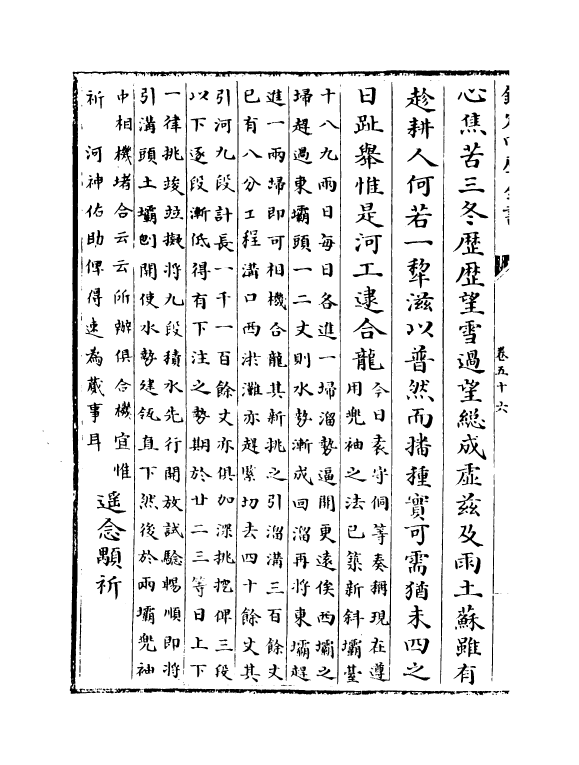 欽定四庫全書
卷五十六
心焦苦三冬歴歴望雪過望総成虛兹及雨土蘇雖有
趁耕人何若一犂滋以普然而播種實可需猶未四之
日趾舉惟是河工逮合龍
今日袁守侗等奏稱現在遵
用兜袖之法已築新斜壩臺
十八九兩日每日各進一埽溜勢逼開更遠俟西壩之
埽趕過東壩頭一二丈則水勢漸成回溜再將東壩趕
進一兩埽即可相機合龍其新挑之引溜溝三百餘丈
已有八分工程溝口西洪灘亦趕緊切去四十餘丈其
引河九段計長一千一百餘丈亦俱加深挑挖俾三段
以下逐段漸低得有下注之勢期於廿二三等日上下
一律挑竣並擬將九段積水先行開放試驗暢順即將
引溝頭土壩刨開使水勢建瓴直下然後於兩壩兜袖
中相機堵合云云所辦俱合機宜惟
祈 河神佑助俾得速為蕆事耳
遥念顒祈